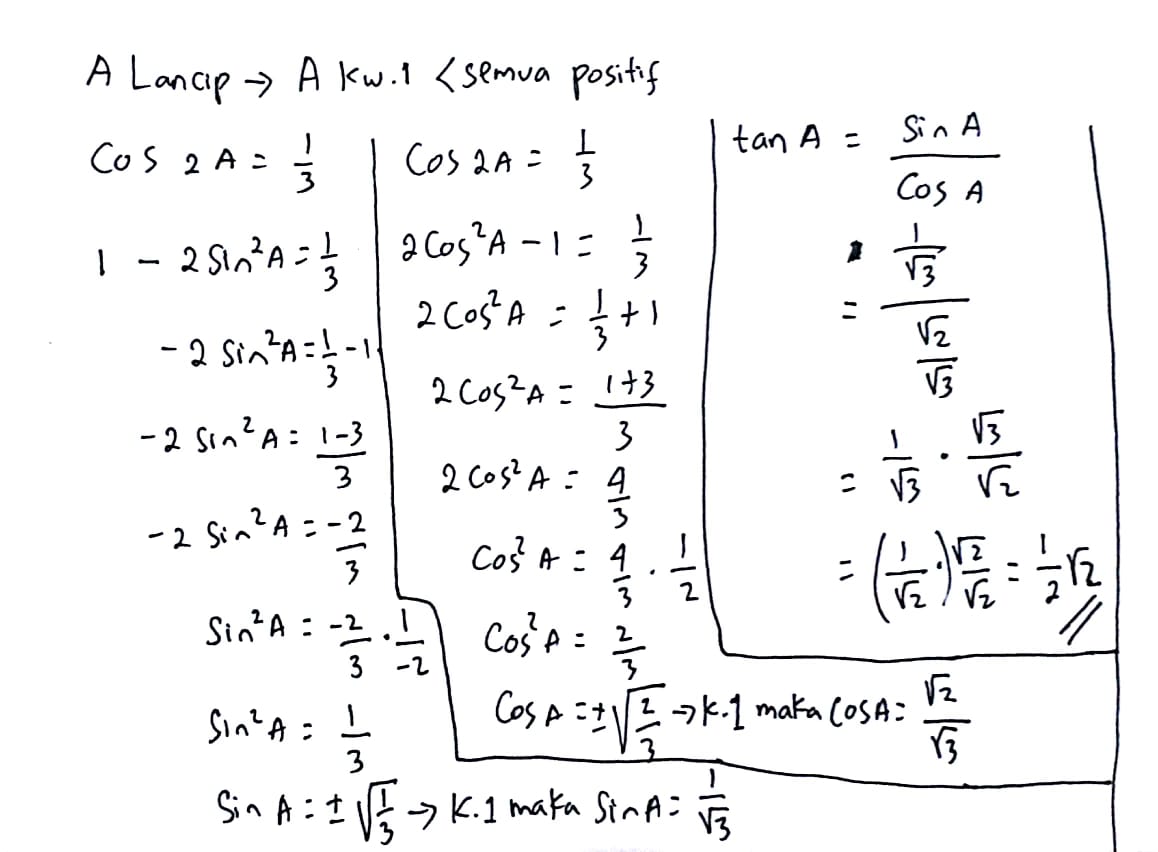 A Lancip → A kw.1 < semua positif
Cos 2A = 1/3
1 - 2 Sin²A = 1/3
-2 Sin²A = 1/3 - 1
-2 Sin²A = (1-3)/3
-2 Sin²A = -2/3
Sin²A = -2/3 . 1/-2
Sin²A = 1/3
Sin A = ±√(1/3) → K.1 maka Sin A = 1/√3
Cos 2A = 1/3
2 Cos²A - 1 = 1/3
2 Cos²A = 1/3 + 1
2 Cos²A = (1+3)/3
2 Cos²A = 4/3
Cos²A = 4/3 . 1/2
Cos²A = 2/3
Cos A = ±√(2/3) → K.1 maka Cos A = √2/√3
tan A = Sin A / Cos A
= (1/√3) / (√2/√3)
= 1/√3 . √3/√2
= (1/√2) . √2/√2 = 1/2 √2 //